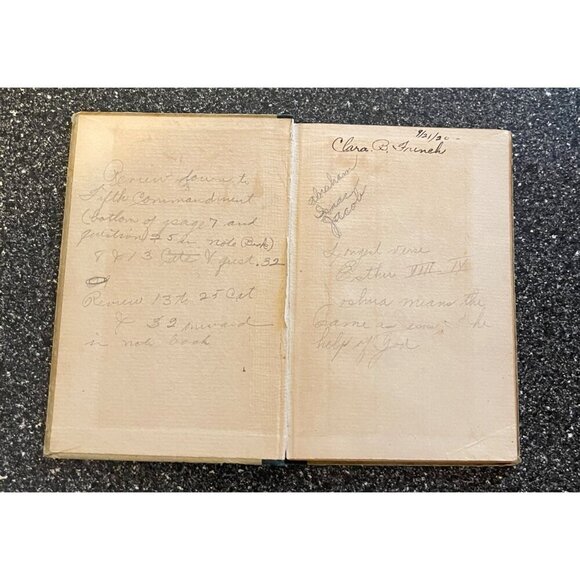 Review down to
Fifth Commandment
bottom of page 7 and
question 5 in note (Book)
8 & 13 & quest. 32
Review 13 to 25 Cat
& 32 onward
in note book
9/21/30
Clara B. French
Abraham
Isaac
Jacob
Longest verse
Esther VIII - IX
Joshua means the
same as Jesus, the
help of God